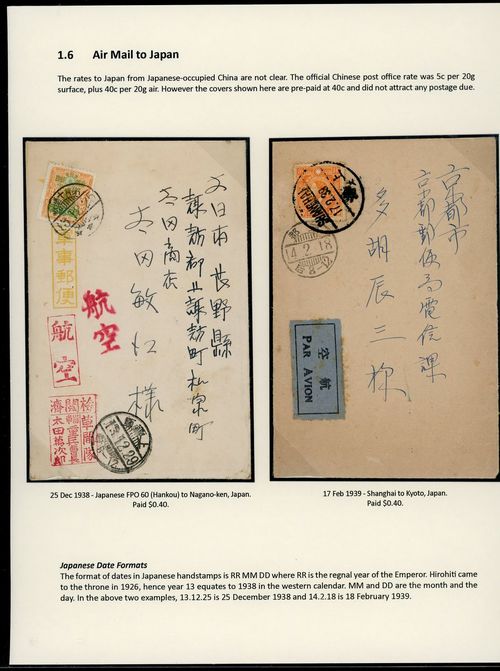 1.6 Air Mail to Japan
The rates to Japan from Japanese-occupied China are not clear. The official Chinese post office rate was 5c per 20g
surface, plus 40c per 20g air. However the covers shown here are pre-paid at 40c and did not attract any postage due.
大日本長野縣
諏訪郡上諏訪町
太田商店
太田敏
様
軍事郵便
航空
航空
25 Dec 1938 - Japanese FPO 60 (Hankou) to Nagano-ken, Japan.
Paid $0.40.
京都市
京都郵便局電信課
多胡辰三
SHANGHAI
14.2.18
航空
PAR AVION
17 Feb 1939 - Shanghai to Kyoto, Japan.
Paid $0.40.
Japanese Date Formats
The format of dates in Japanese handstamps is RR MM DD where RR is the regnal year of the Emperor. Hirohiti came
to the throne in 1926, hence year 13 equates to 1938 in the western calendar. MM and DD are the month and the
day. In the above two examples, 13.12.25 is 25 December 1938 and 14.2.18 is 18 February 1939.